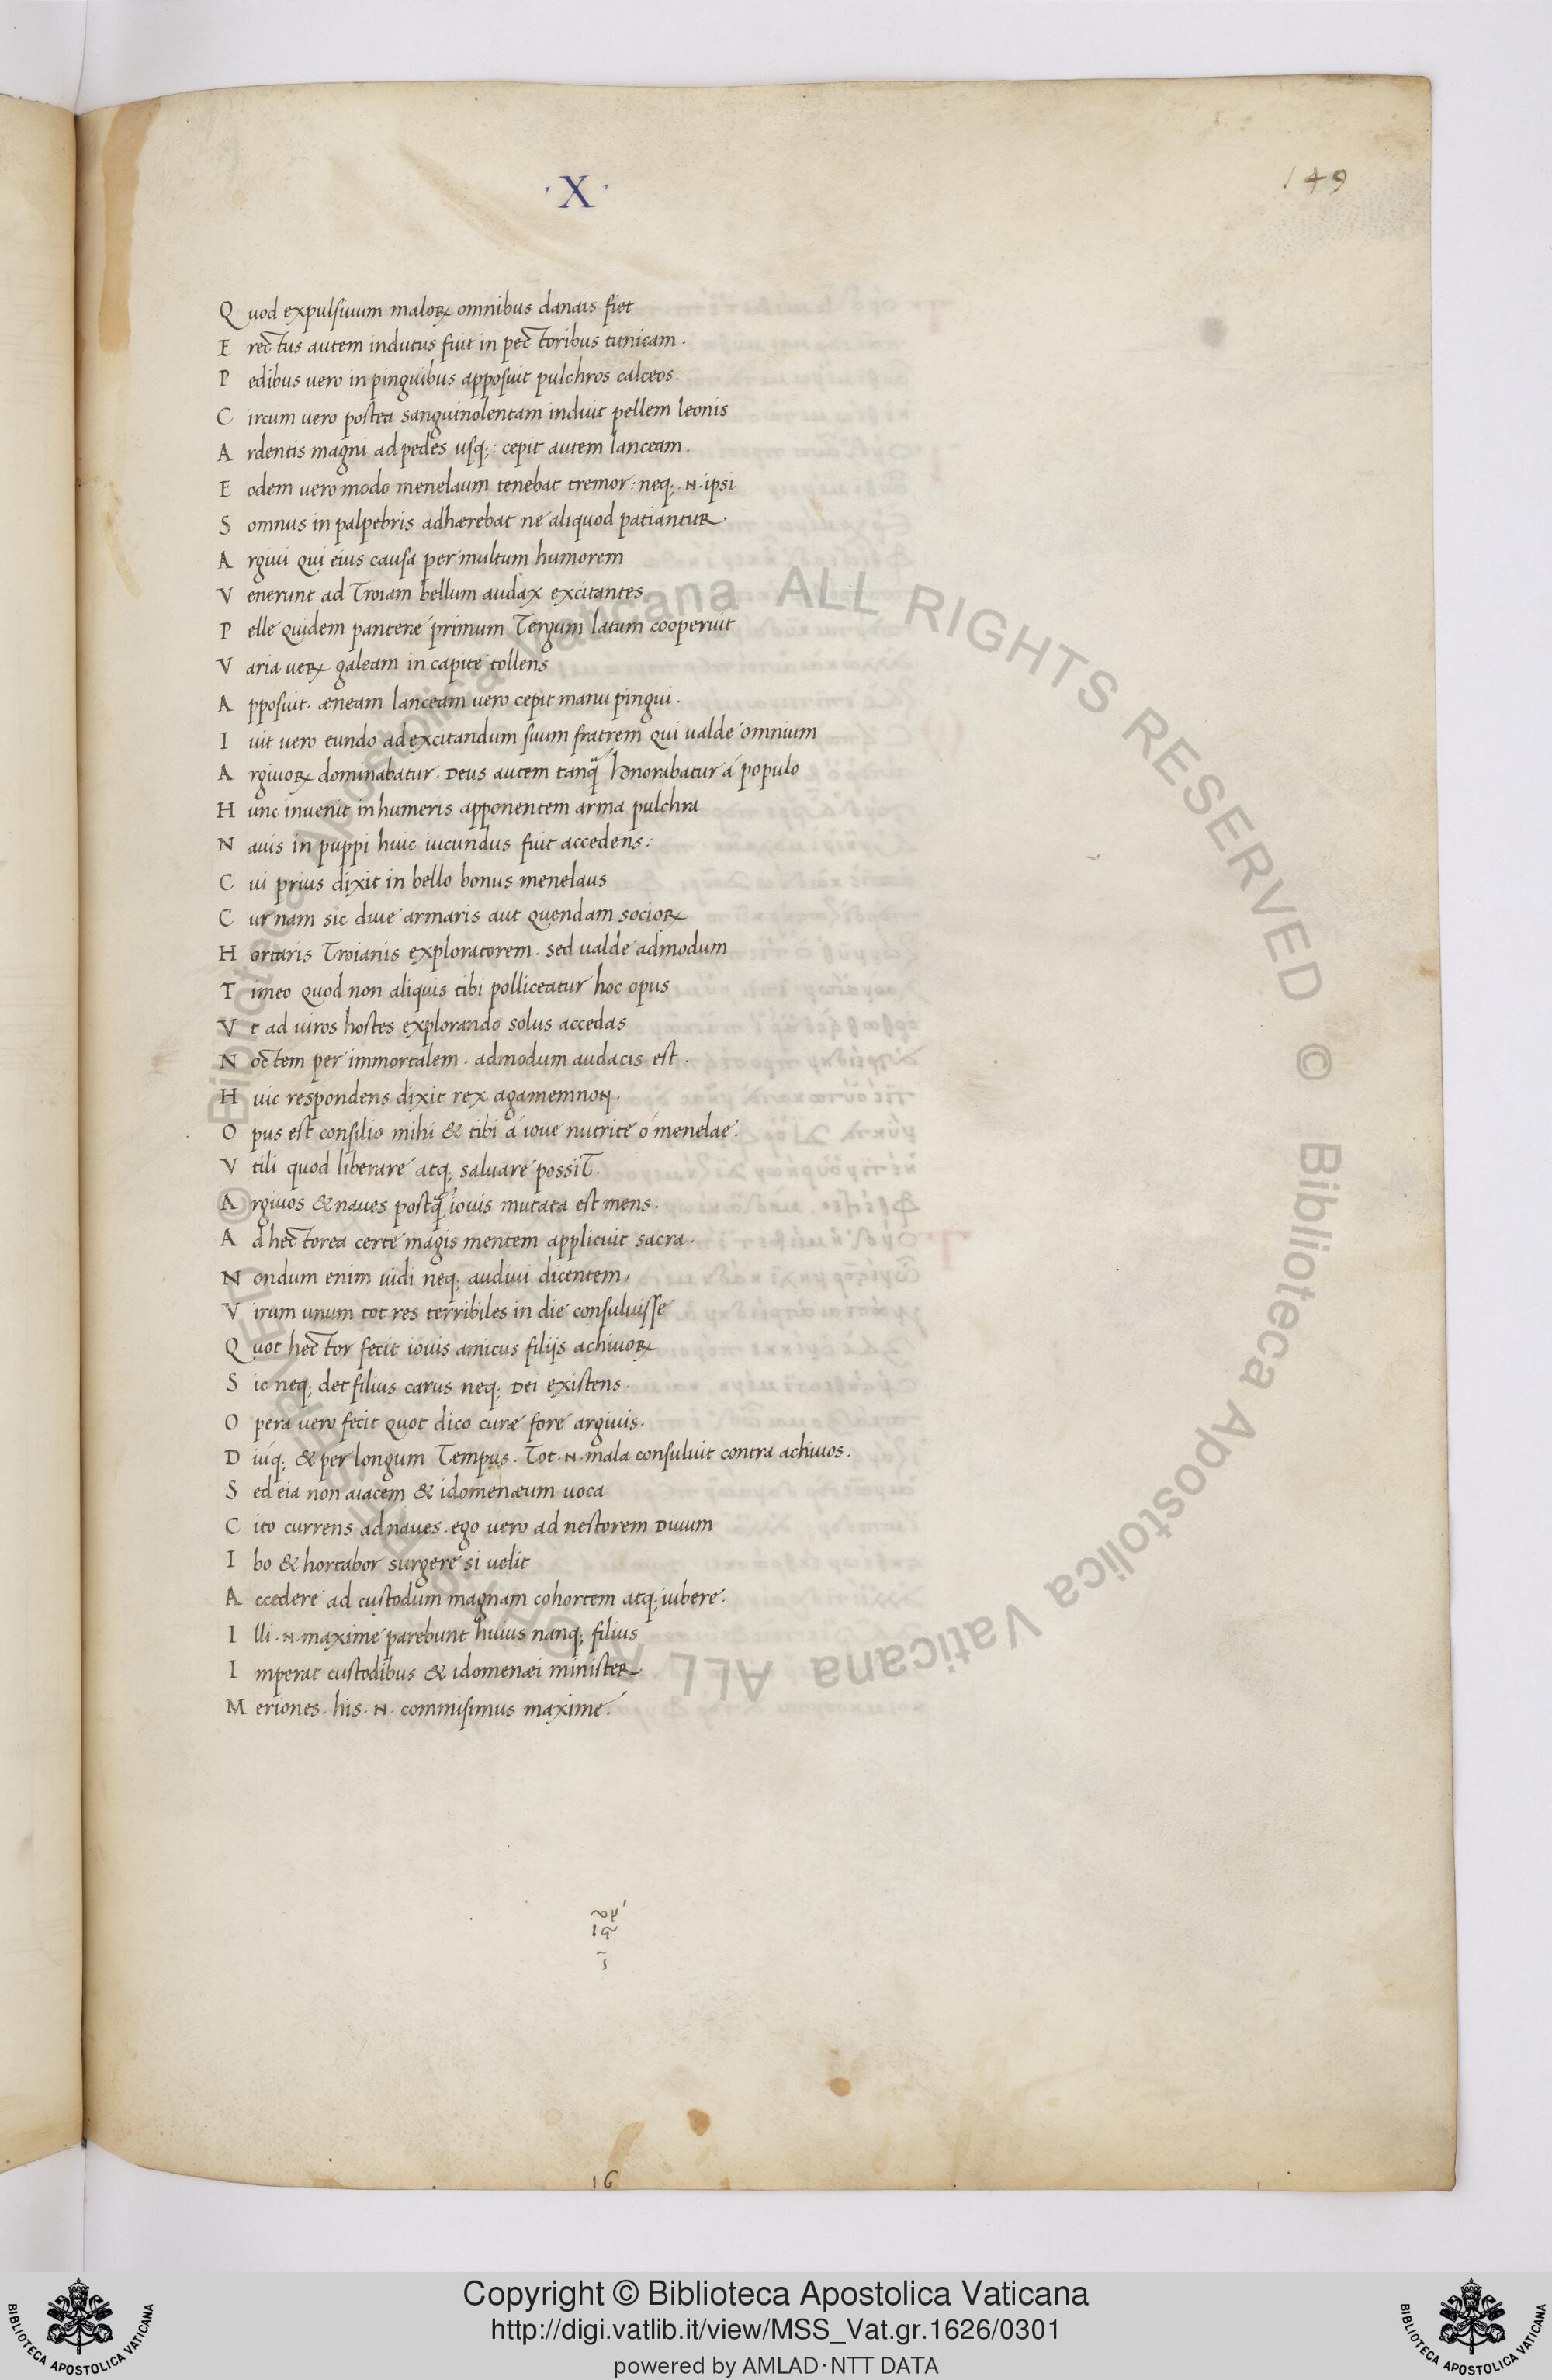 · X ·
149
Quod expulsiuum maloꝝ omnibus danais fiet
Erectus autem indutus fuit in pectoribus tunicam.
Pedibus uero in pinguibus apposuit pulchros calceos.
Circum uero postea sanguinolentam induit pellem leonis
Ardentis magni ad pedes usq;: cepit autem lanceam.
Eodem uero modo menelaum tenebat tremor: neq;. N. ipsi
Somnus in palpebris adhærebat ne aliquod patiantur.
Argiui qui eius causa per multum humorem
Venerunt ad Troiam bellum audax excitantes
Pelle quidem panteræ primum Tergum latum cooperuit
Varia ueꝝ galeam in capite tollens
Apposuit. æneam lanceam uero cepit manu pingui.
Iuit uero eundo ad excitandum suum fratrem qui ualde omnium
Argiuoꝝ dominabatur. Deus autem tanq̃ honorabatur á populo
Hunc inuenit in humeris apponentem arma pulchra
Nauis in puppi huic iucundus fuit accedens:
Cui prius dixit in bello bonus menelaus
Cur nam sic diue armaris aut quendam socioꝝ
Hortaris Troianis exploratorem. sed ualde admodum
Timeo quod non aliquis tibi polliceatur hoc opus
Vt ad uiros hostes explorando solus accedas
Noctem per immortalem. admodum audacis est.
Huic respondens dixit rex agamemnon.
Opus est consilio mihi & tibi á ioue nutrite ó menelae.
Vtili quod liberare atq; saluare possit.
Argiuos & naues postq̃ iouis mutata est mens.
Ad hectorea certe magis mentem applicuit sacra.
Nondum enim uidi neq; audiui dicentem,
Virum unum tot res terribiles in die consuluisse
Quot hector fecit iouis amicus filijs achiuoꝝ
Sic neq; det filius carus neq; Dei existens.
Opera uero fecit quot dico curæ fore argiuis.
Diuq; & per longum Tempus. Tot. N. mala consuluit contra achiuos.
Sed eia non aiacem & idomenæum uoca
Cito currens ad naues. ego uero ad nestorem Diuum
Ibo & hortabor surgere si uelit
Accedere ad custodum magnam cohortem atq; iubere.
Illi. N. maxime parebunt huius nanq; filius
Imperat custodibus & idomenæi minister
Meriones. his. N. commisimus maxime.
16
© Biblioteca Apostolica Vaticana ALL RIGHTS RESERVED © Biblioteca Apostolica Vaticana ALL RIGHTS RESERVED
BIBLIOTECA APOSTOLICA VATICANA
Copyright © Biblioteca Apostolica Vaticana
http://digi.vatlib.it/view/MSS_Vat.gr.1626/0301
powered by AMLAD·NTT DATA
BIBLIOTECA APOSTOLICA VATICANA